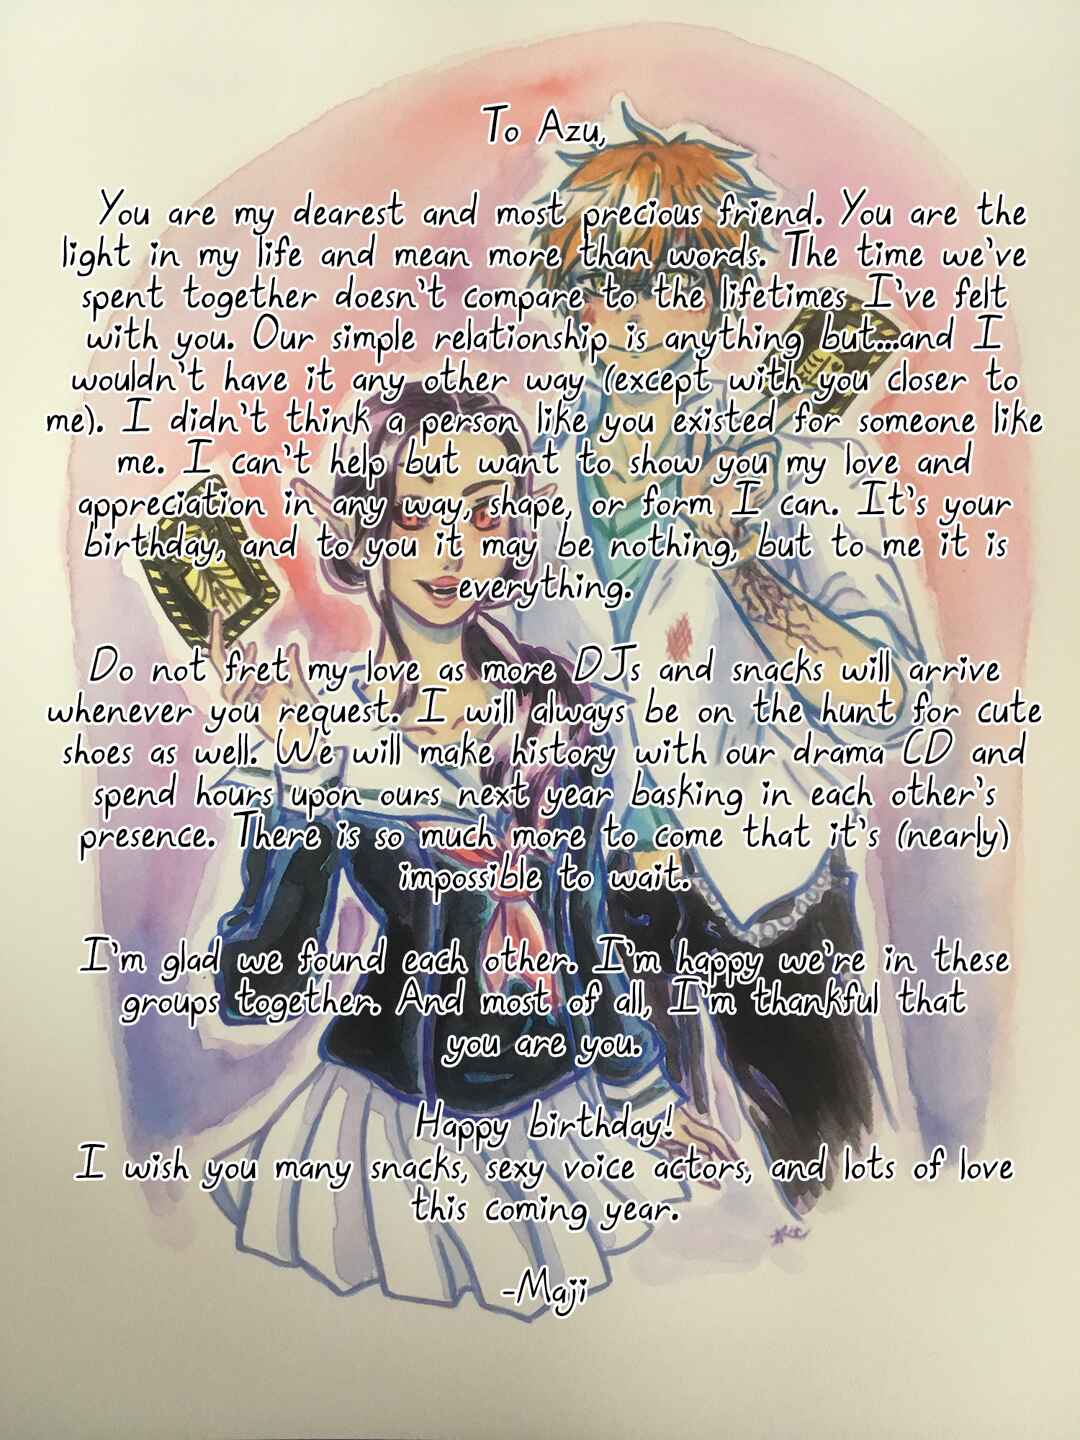 To Azu,
You are my dearest and most precious friend. You are the
light in my life and mean more than words. The time we've
spent together doesn't compare to the lifetimes I've felt
with you. Our simple relationship is anything but...and I
wouldn't have it any other way (except with you closer to
me). I didn't think a person like you existed for someone like
me. I can't help but want to show you my love and
appreciation in any way, shape, or form I can. It's your
birthday, and to you it may be nothing, but to me it is
everything.
Do not fret my love as more DJs and snacks will arrive
whenever you request. I will always be on the hunt for cute
shoes as well. We will make history with our drama CD and
spend hours upon ours next year basking in each other's
presence. There is so much more to come that it's (nearly)
impossible to wait.
I'm glad we found each other. I'm happy we're in these
groups together. And most of all, I'm thankful that
you are you.
Happy birthday!
I wish you many snacks, sexy voice actors, and lots of love
this coming year.
-Maji